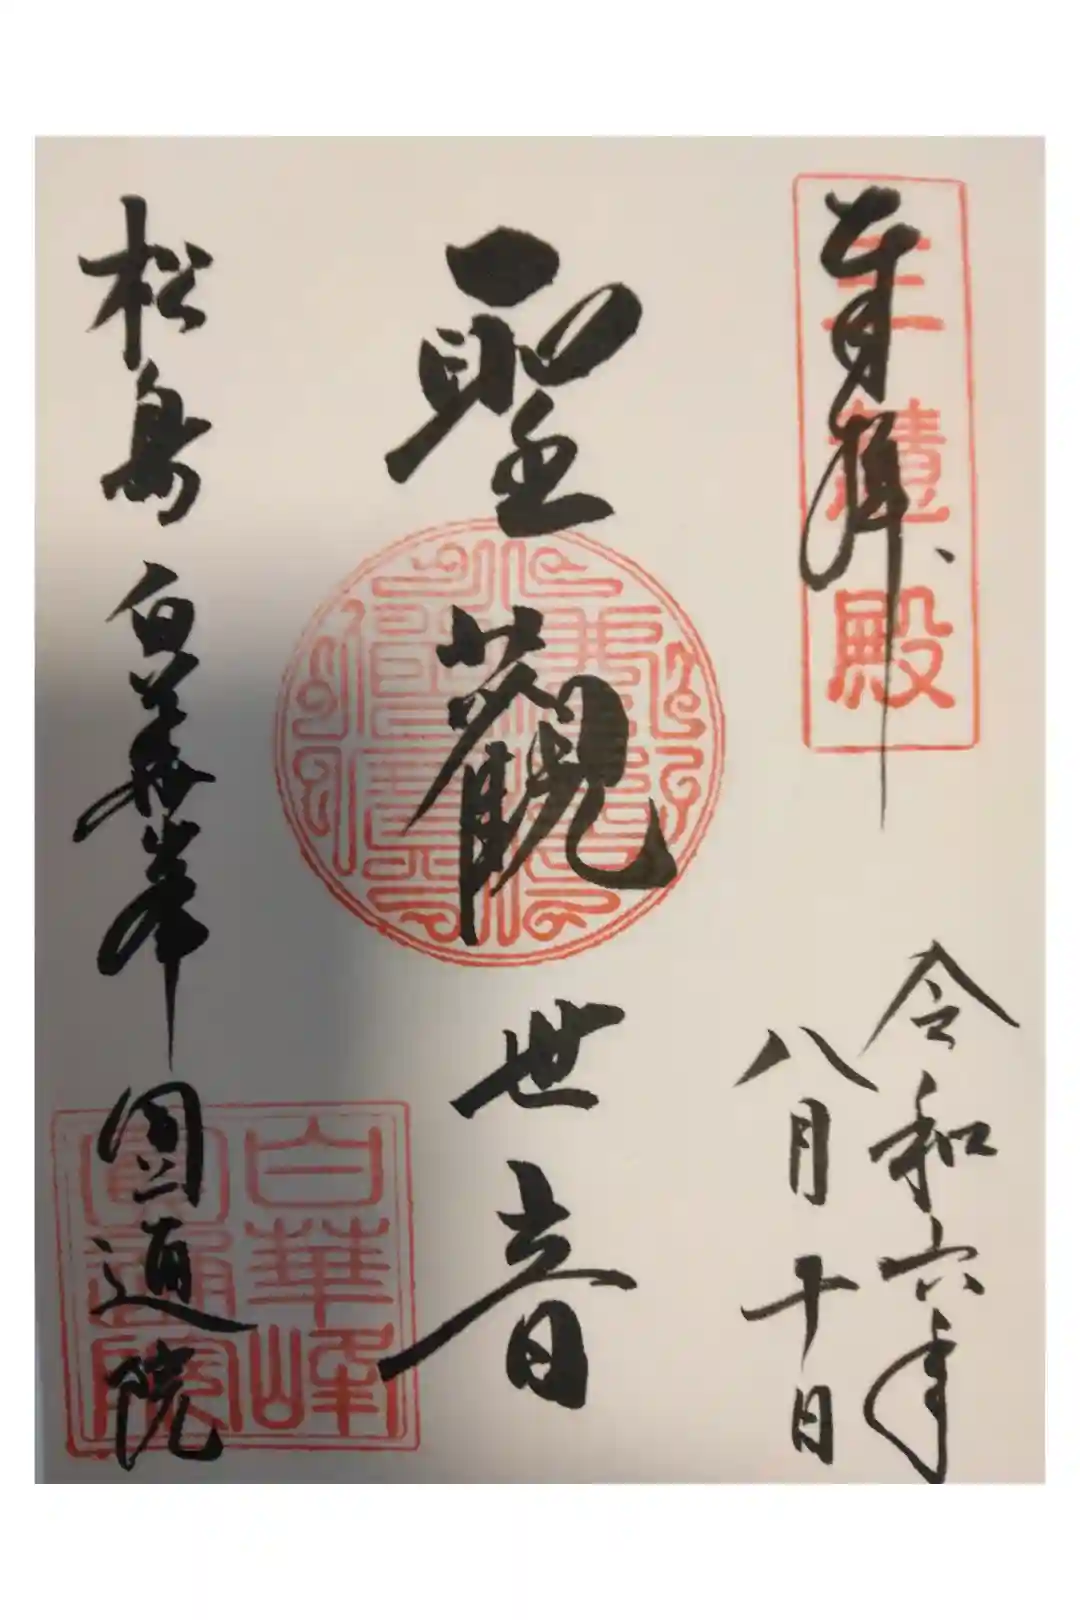 奉拝
三慧殿
令和六年
八月十日
聖觀世音
松島白華峯圓通院
白華峰
圓通院